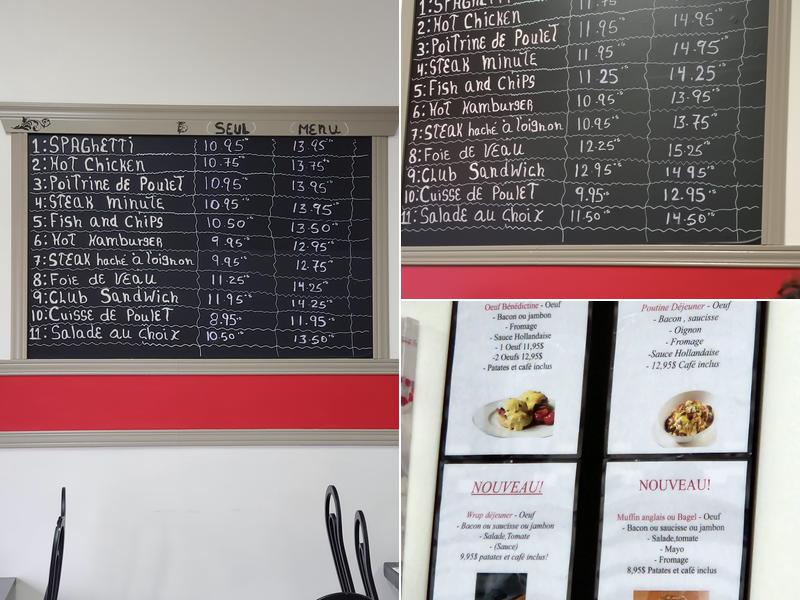 SEUL MENU
1: SPAGHETTI 10.95+tx 13.95+tx
2: HOT Chicken 10.75+tx 13.75+tx
3: PoiTrine de PouleT 10.95+tx 13.95+tx
4: STEAK minute 10.95+tx 13.95+tx
5: Fish and Chips 10.50+tx 13.50+tx
6: HoT HamburgER 9.95+tx 12.95+tx
7: STEAK haché à l'oignon 9.95+tx 12.75+tx
8: Foie DE VEau 11.25+tx 14.25+tx
9: Club SandWich 11.95+tx 14.25+tx
10: Cuisse de PouleT 8.95+tx 11.95+tx
11: Salade au Choix 10.50+tx 13.50+tx
1: SPAGHETTI 11.75
2: HoT Chicken 11.95+tx 14.95+tx
3: PoiTrine de PouleT 11.95+tx 14.95+tx
4: STEAK minute 11.95+tx 14.95+tx
5: Fish and Chips 11.25+tx 14.25+tx
6: HoT HamburgER 10.95+tx 13.95+tx
7: STEAK haché à l'oignon 10.95+tx 13.75+tx
8: Foie DE VEAU 12.25+tx 15.25+tx
9: Club SandWich 12.95+tx 14.95+tx
10: Cuisse de PouleT 9.95+tx 12.95+tx
11: Salade au Choix 11.50+tx 14.50+tx
Oeuf Bénédictine - Oeuf
- Bacon ou jambon
- Fromage
- Sauce Hollandaise
- 1 Oeuf 11,95$
-2 Oeufs 12,95$
- Patates et café inclus
Poutine Déjeuner - Oeuf
- Bacon , saucisse
- Oignon
- Fromage
-Sauce Hollandaise
- 12,95$ Café inclus
NOUVEAU!
Wrap déjeuner - Oeuf
- Bacon ou saucisse ou jambon
- Salade,Tomate
- (Sauce)
9,95$ patates et café inclus!
NOUVEAU!
Muffin anglais ou Bagel - Oeuf
- Bacon ou saucisse ou jambon
- Salade,tomate
- Mayo
- Fromage
8,95$ Patates et café inclus